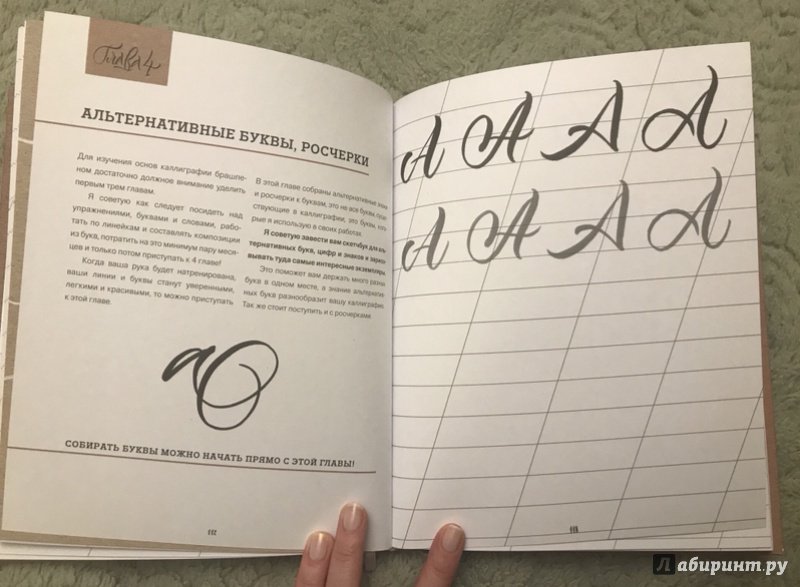 Глава 4
АЛЬТЕРНАТИВНЫЕ БУКВЫ, РОСЧЕРКИ
Для изучения основ каллиграфии брашпе-
ном достаточно должное внимание уделить
первым трем главам.
Я советую как следует посидеть над
упражнениями, буквами и словами, рабо-
тать по линейкам и составлять композиции
из букв, потратить на это минимум пару меся-
цев и только потом приступать к 4 главе!
Когда ваша рука будет натренирована,
ваши линии и буквы станут уверенными,
легкими и красивыми, то можно приступать
к этой главе.
В этой главе собраны альтернативные знаки
и росчерки к буквам, это не все буквы, суще-
ствующие в каллиграфии, это буквы, кото-
рые я использую в своих работах.
Я советую завести вам скетчбук для аль-
тернативных букв, цифр и знаков и зарисо-
вывать туда самые интересные экземпляры.
Это поможет вам держать много разных
букв в одном месте, а знание альтернатив-
ных букв разнообразит вашу каллиграфию.
Так же стоит поступить и с росчерками.
СОБИРАТЬ БУКВЫ МОЖНО НАЧАТЬ ПРЯМО С ЭТОЙ ГЛАВЫ!
А А А А
А А А А
Лабиринт.ру